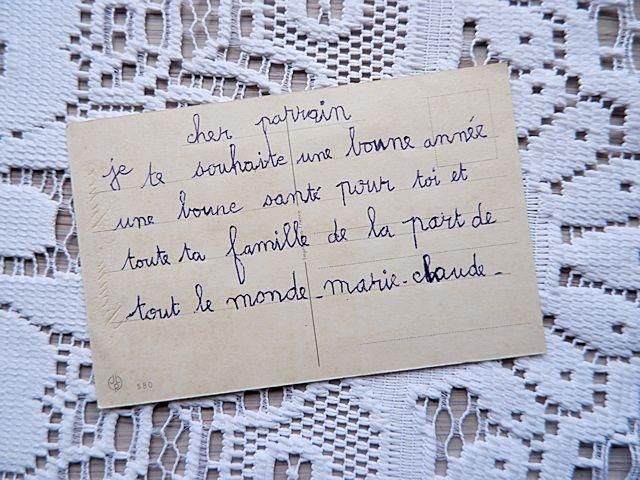 cher parrain
je te souhaite une bonne année
une bonne santé pour toi et
toute ta famille de la part de
tout le monde - marie - claude -
580